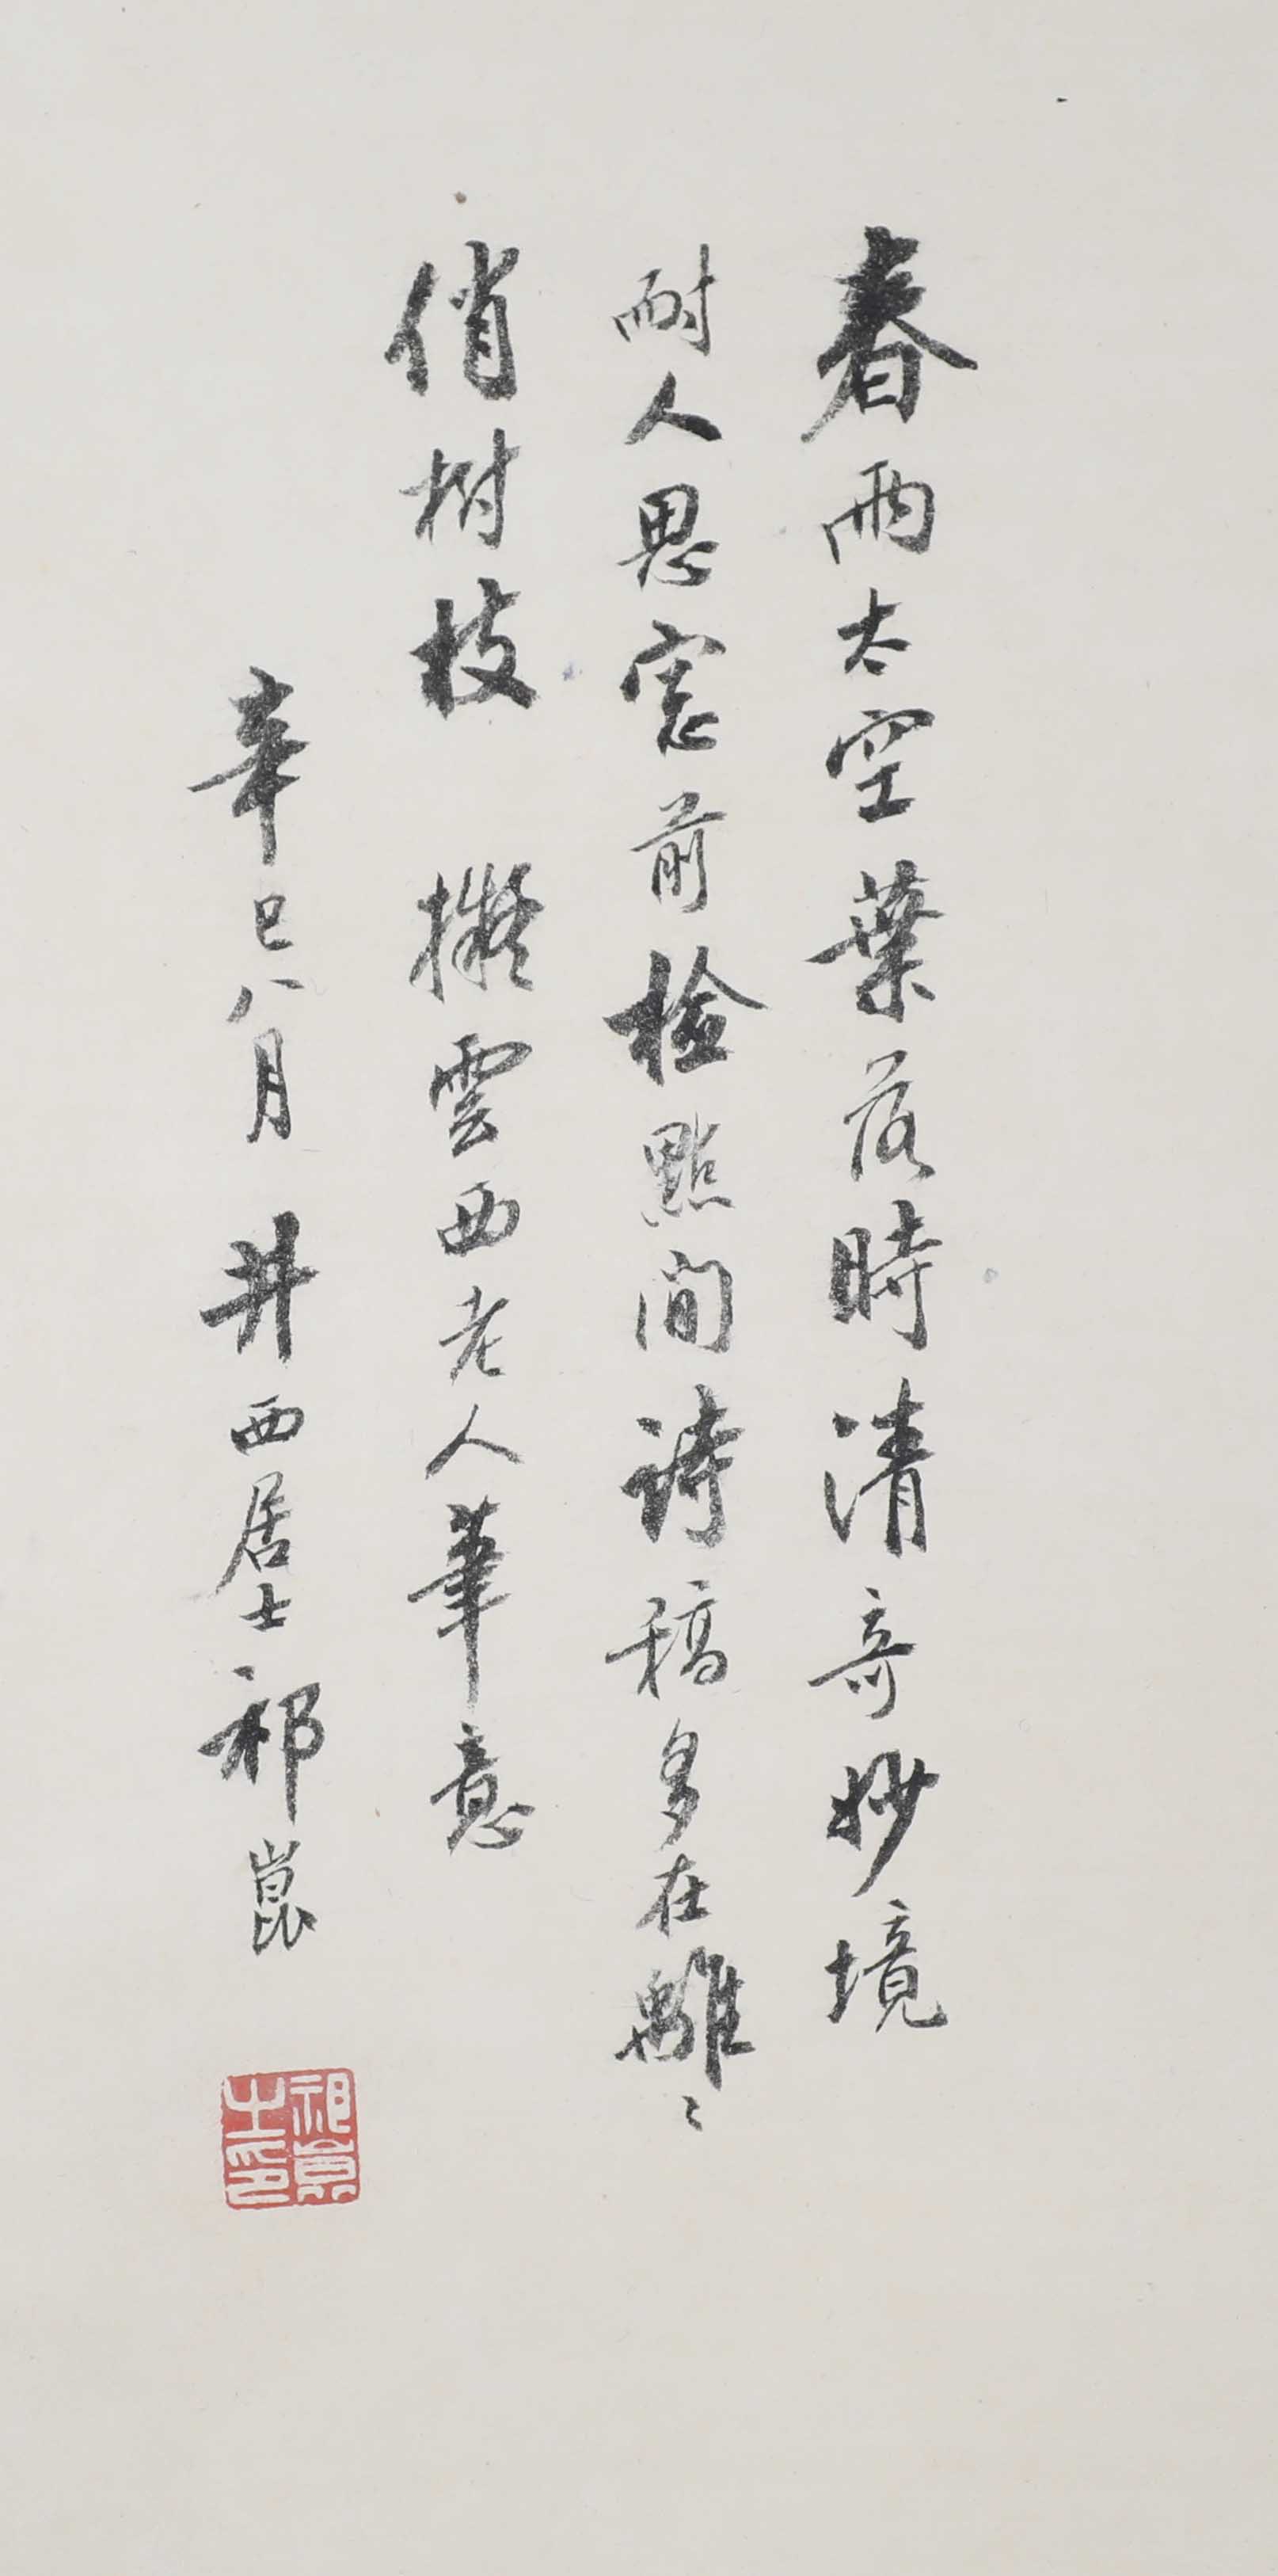 春雨太空葉落時清奇妙境
耐人思窓前檢點閒詩稿多在離〻
俏樹枝 擬雲西老人筆意
辛巳八月 井西居士祁崑
祁崑之印